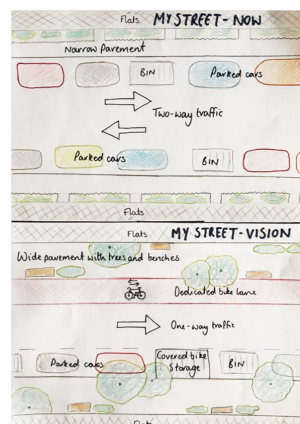 Flats MY STREET - NOW
Narrow Pavement
BIN Parked cars
Two-way traffic
Parked cars BIN
Flats
Flats MY STREET - VISION
Wide pavement with trees and benches
Dedicated bike lane
One-way traffic
Parked cars Covered bike BIN
Storage
Flats